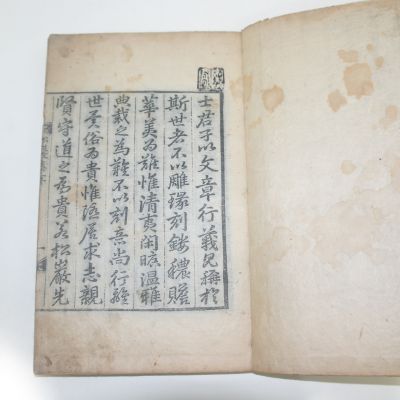 士君子以文章行義見稱於
斯世者不以雕琢刻鏤穠贍
華美為難惟清夷閑曠溫雅
典裁之為難不以刻意尚行離
世異俗為貴惟隱居求志親
賢守道之為貴若松巖先